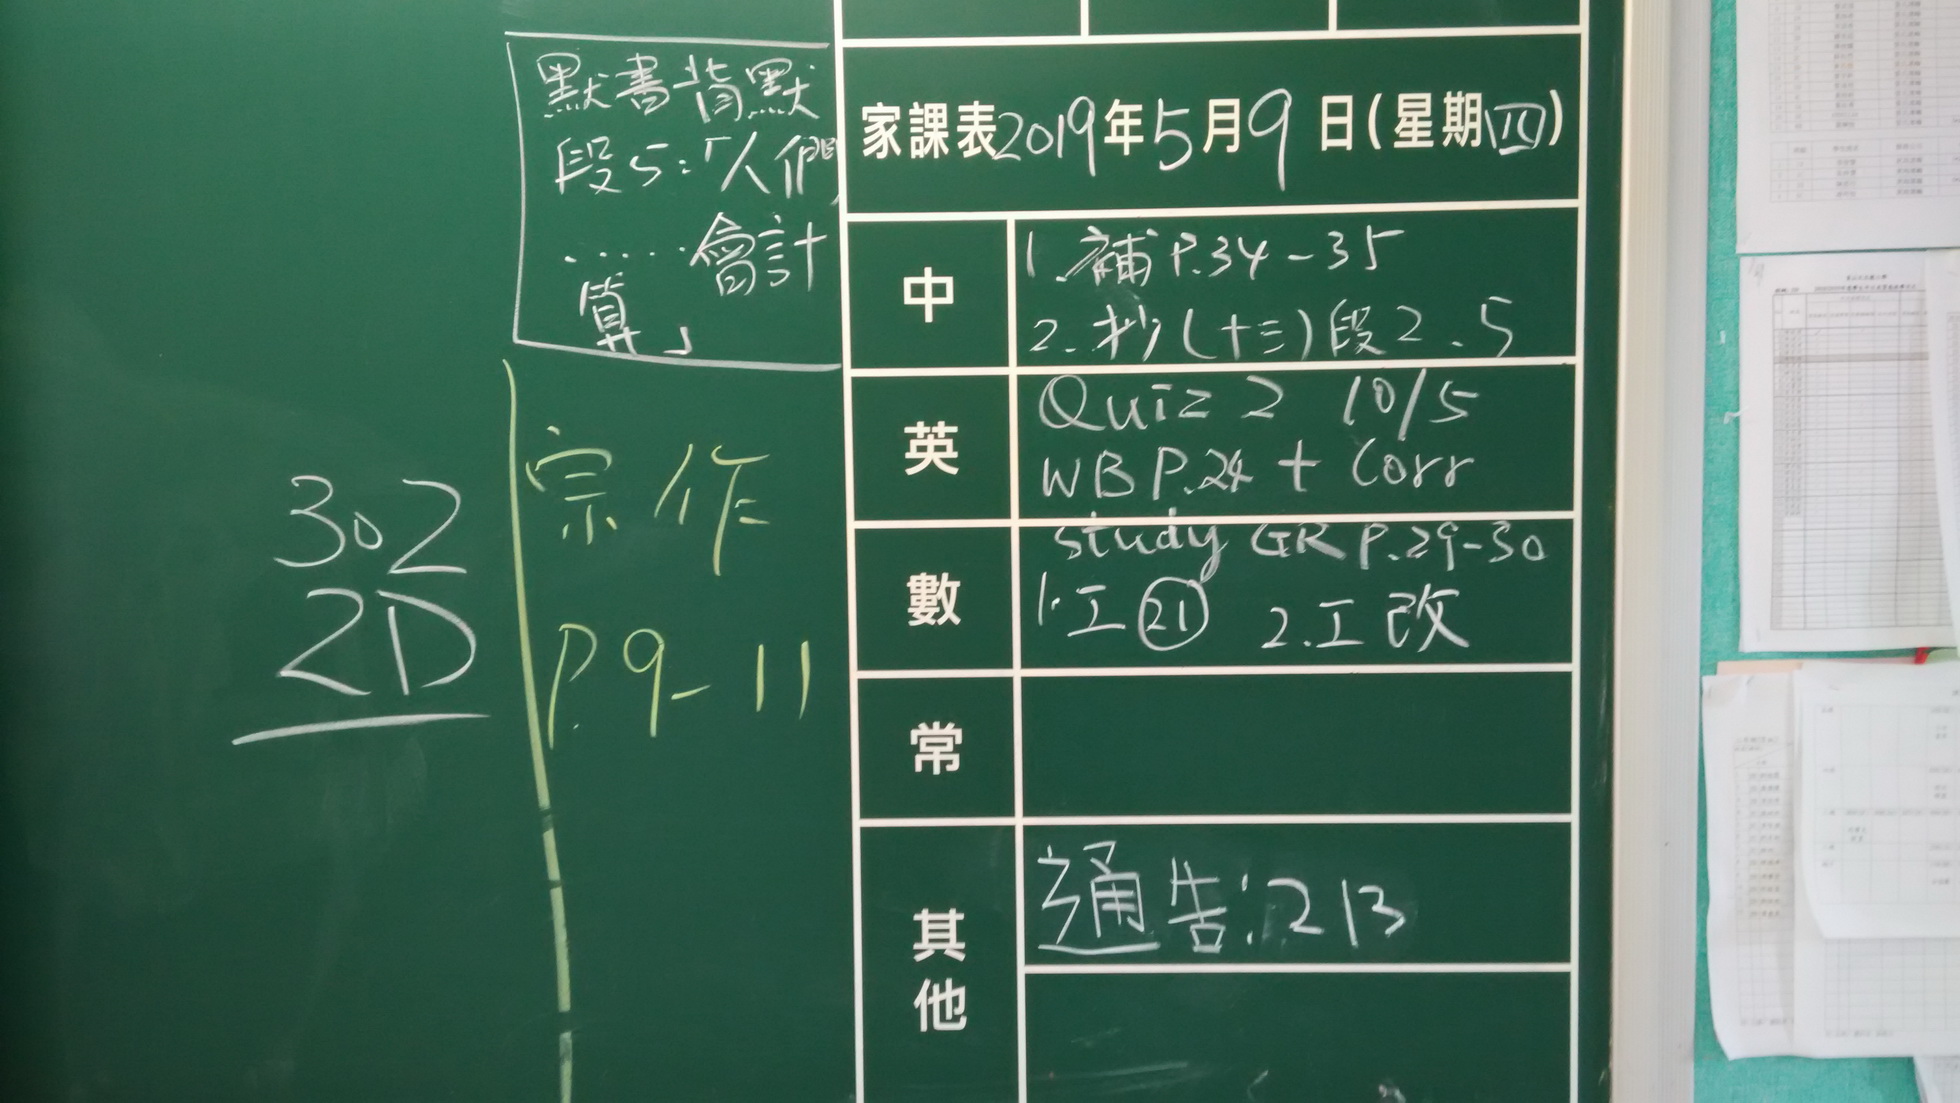 默書背默
段5:「人們
……會計
算」
宗作
P.9-11
302
2D
家課表2019年5月9日(星期四)
中
1.補P.34-35
2.抄(十三)段2.5
英
Quiz 2 10/5
WB P.24 + Corr
study GR P.29-30
數
1.工㉑ 2.工改
常
其他
通告:213